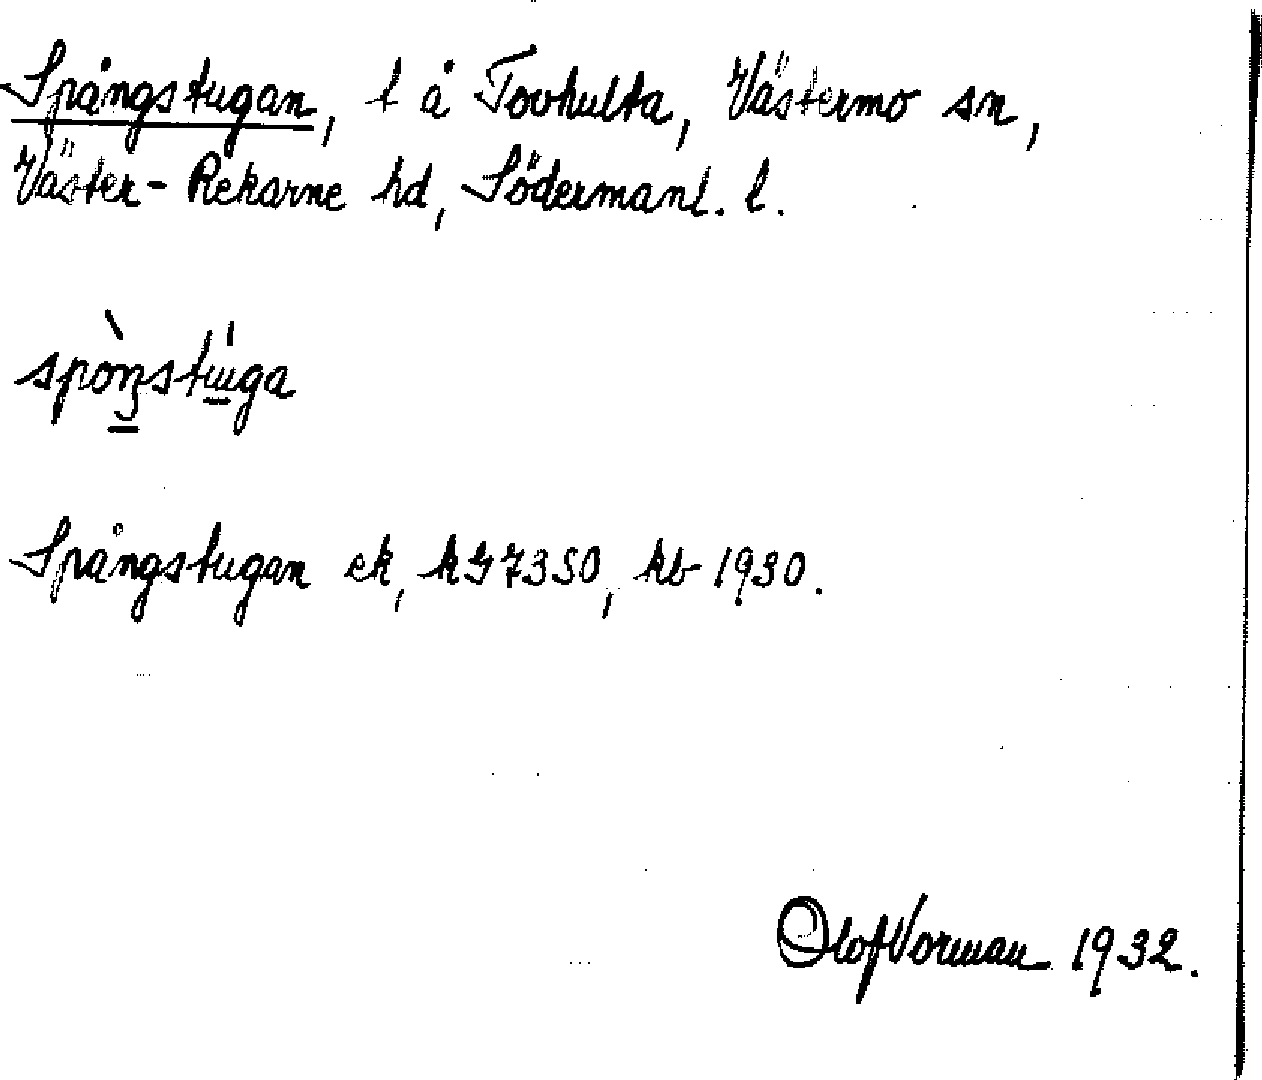 Spångstugan, l å Tovhulta, Västermo sn,
Väster-Rekarne hd, Södermanl. l.
Spångstugan ek, kG 7350, kb 1930.
Olof Vorman 1932.